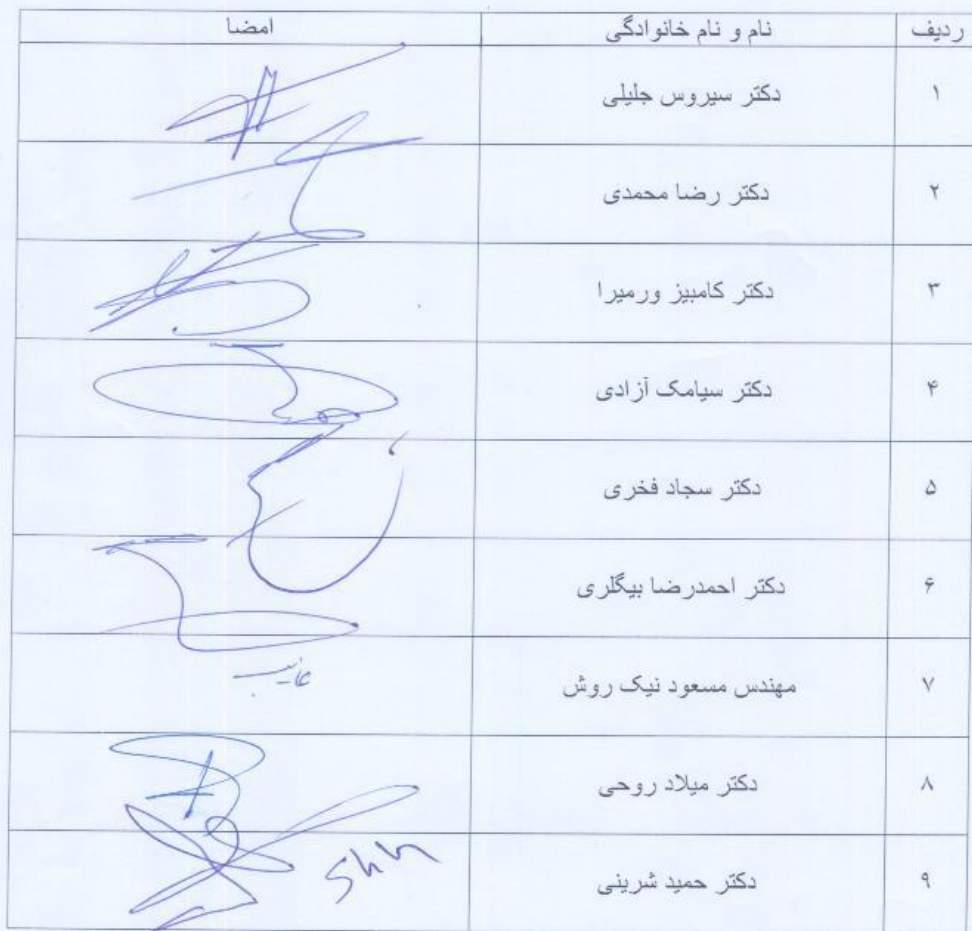 ردیف نام و نام خانوادگی امضا
۱ دکتر سیروس جلیلی
۲ دکتر رضا محمدی
۳ دکتر کامبیز ورمیرا
۴ دکتر سیامک آزادی
۵ دکتر سجاد فخری
۶ دکتر احمدرضا بیگلری
۷ مهندس مسعود نیک روش غایب
۸ دکتر میلاد روحی
۹ دکتر حمید شرینی